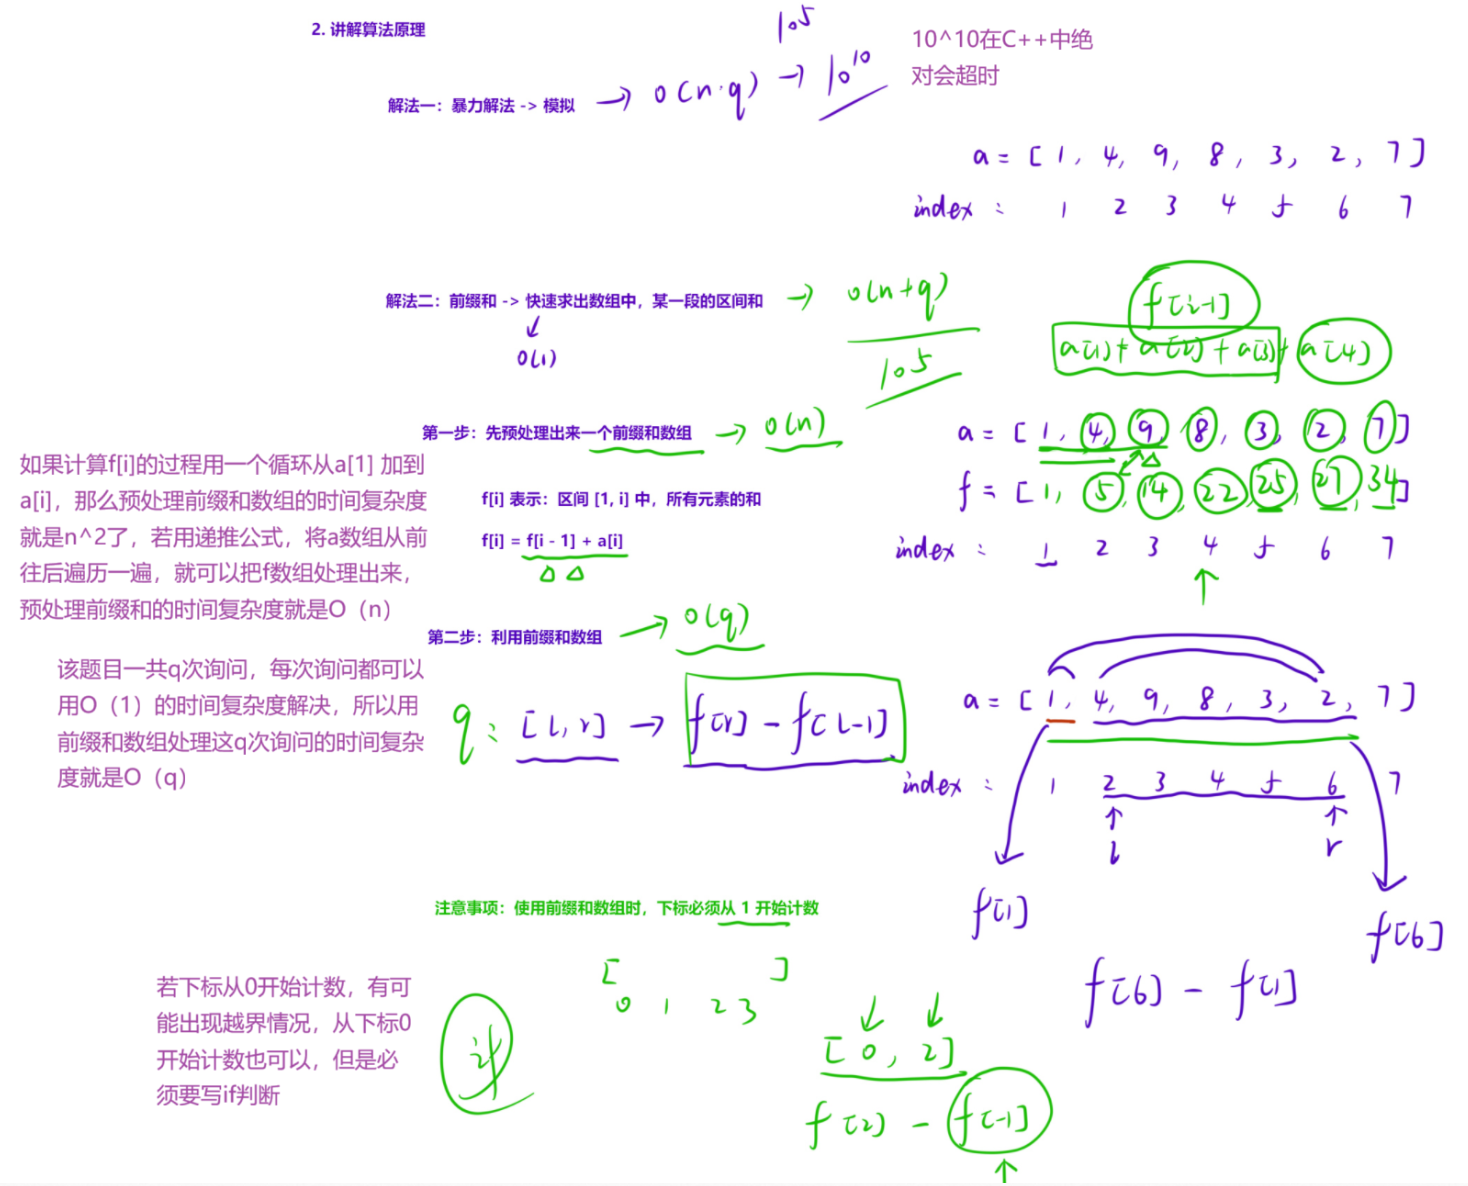 2. 讲解算法原理
10^5
10^10在C++中绝
对会超时
解法一：暴力解法 -> 模拟 → O(n·q) → 10^10
a = [1, 4, 9, 8, 3, 2, 7]
index : 1 2 3 4 5 6 7
解法二：前缀和 -> 快速求出数组中，某一段的区间和 → O(n+q)
O(1)
10^5
f[i-1]
a[1] + a[2] + a[3] + a[4]
第一步：先预处理出来一个前缀和数组 → O(n)
a = [1, 4, 9, 8, 3, 2, 7]
f = [1, 5, 14, 22, 25, 27, 34]
index : 1 2 3 4 5 6 7
如果计算f[i]的过程用一个循环从a[1] 加到
a[i]，那么预处理前缀和数组的时间复杂度
就是n^2了，若用递推公式，将a数组从前
往后遍历一遍，就可以把f数组处理出来，
预处理前缀和的时间复杂度就是O（n）
f[i] 表示：区间 [1, i] 中，所有元素的和
f[i] = f[i - 1] + a[i]
第二步：利用前缀和数组 → O(q)
该题目一共q次询问，每次询问都可以
用O（1）的时间复杂度解决，所以用
前缀和数组处理这q次询问的时间复杂
度就是O（q）
q : [l, r] → f[r] - f[l-1]
a = [1, 4, 9, 8, 3, 2, 7]
index : 1 2 3 4 5 6 7
l r
f[1]
f[6]
f[6] - f[1]
注意事项：使用前缀和数组时，下标必须从 1 开始计数
若下标从0开始计数，有可
能出现越界情况，从下标0
开始计数也可以，但是必
须要写if判断
[ ]
0 1 2 3
if
[0, 2]
f[2] - f[-1]